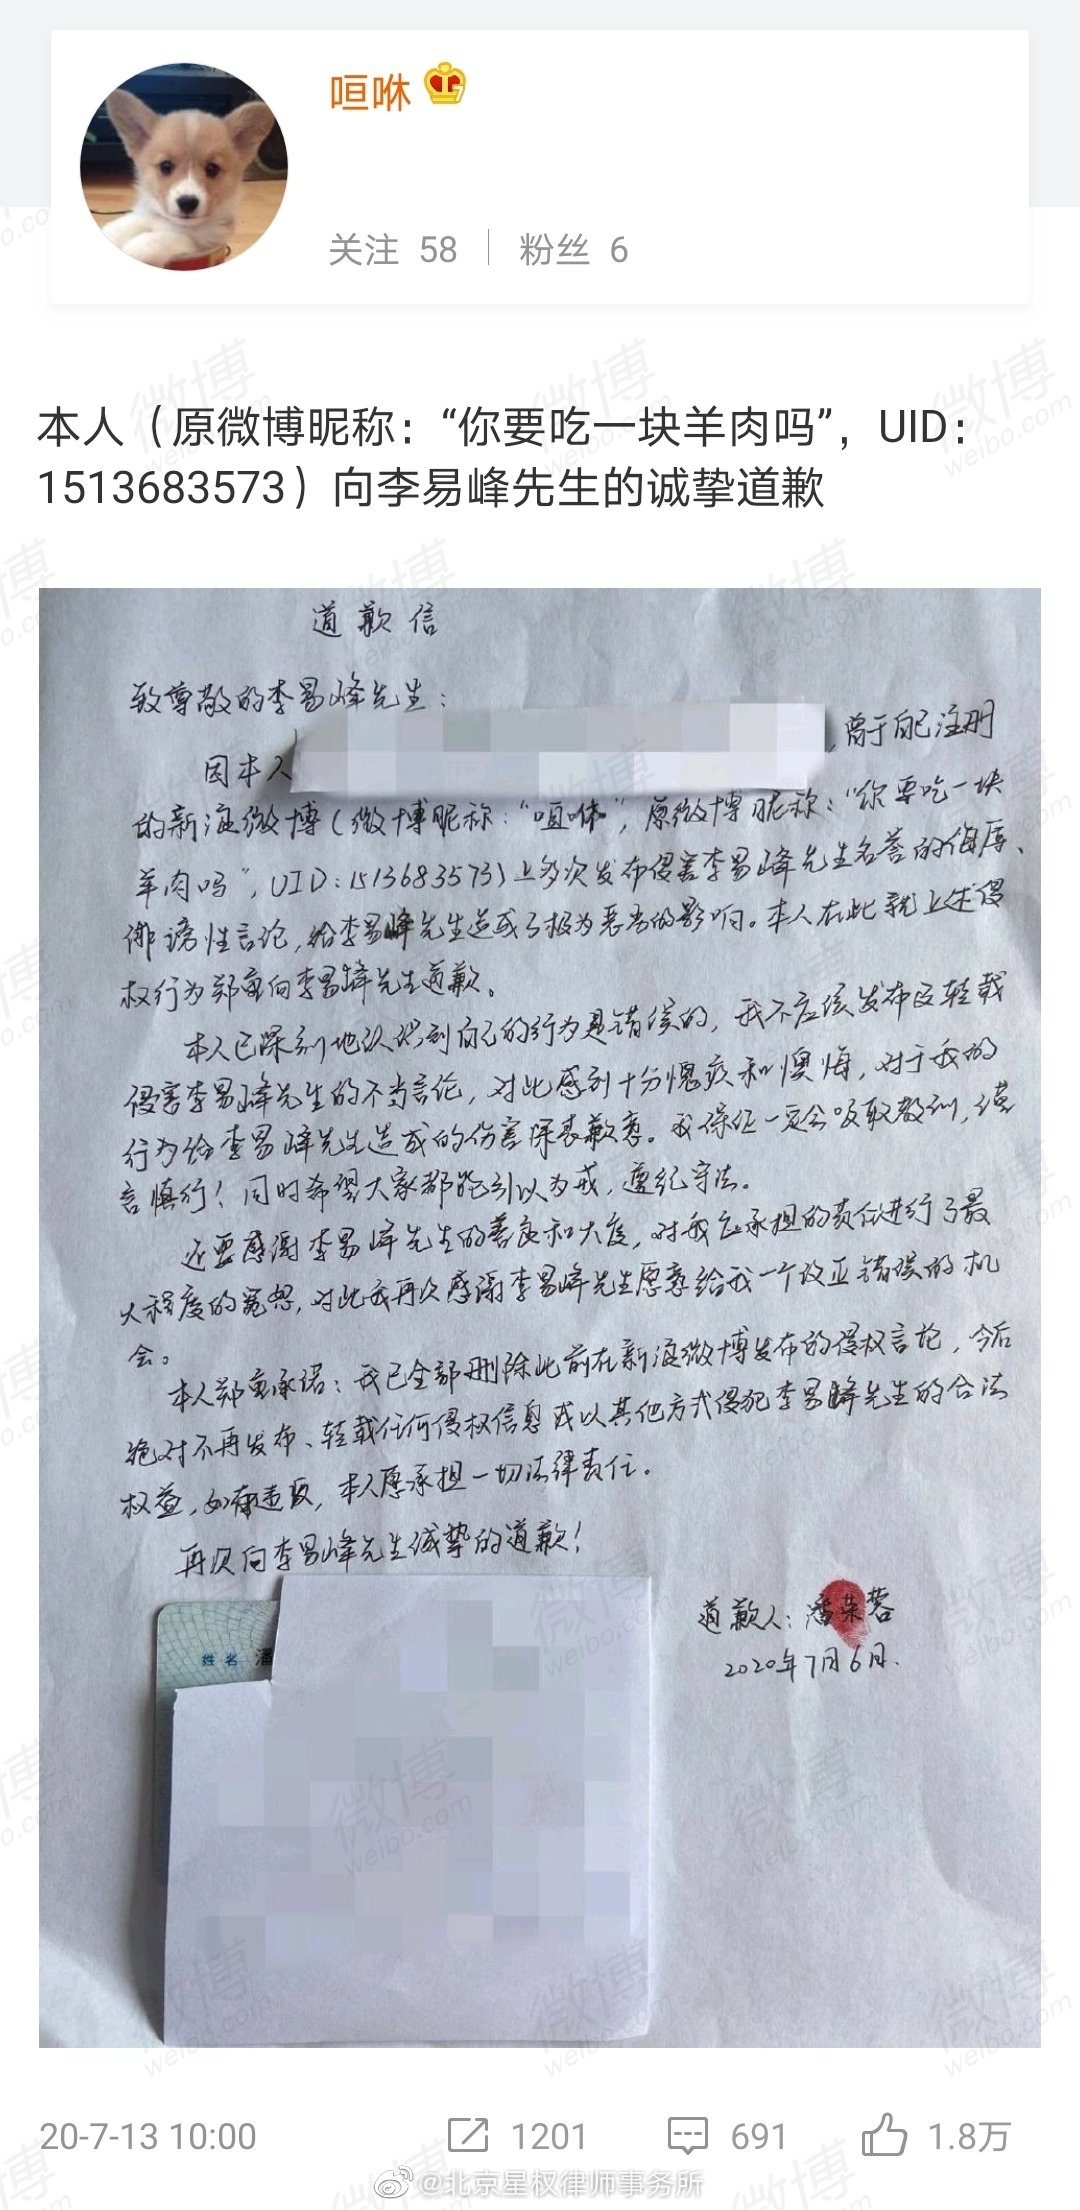 咺咻
关注 58 粉丝 6
本人（原微博昵称：“你要吃一块羊肉吗”，UID：
1513683573）向李易峰先生的诚挚道歉
道歉信
致尊敬的李易峰先生：
因本人 ，曾于自己注册
的新浪微博（微博昵称：“咺咻”，原微博昵称：“你要吃一块
羊肉吗”，UID：1513683573）上多次发布侵害李易峰先生名誉的侮辱、
诽谤性言论，给李易峰先生造成了极为恶劣的影响。本人在此就上述侵
权行为郑重向李易峰先生道歉。
本人已深刻地认识到自己的行为是错误的，我不应该发布及转载
侵害李易峰先生的不当言论，对此感到十分愧疚和懊悔，对于我的
行为给李易峰先生造成的伤害深表歉意。我保证一定会吸取教训，谨
言慎行！同时希望大家都能引以为戒，遵纪守法。
还要感谢李易峰先生的善良和大度，对我应承担的责任进行了最
大程度的宽恕，对此我再次感谢李易峰先生愿意给我一个改正错误的机
会。
本人郑重承诺：我已全部删除此前在新浪微博发布的侵权言论，今后
绝对不再发布、转载任何侵权信息或以其他方式侵犯李易峰先生的合法
权益，如有违反，本人愿承担一切法律责任。
再次向李易峰先生诚挚的道歉！
道歉人：潘荣蓉
2020年7月6日.
姓名 潘
20-7-13 10:00 1201 691 1.8万
@北京星权律师事务所
微博
weibo.com